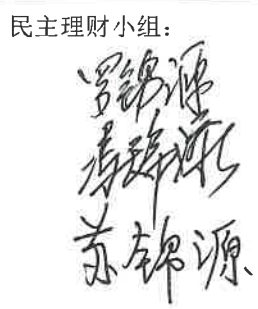 民主理财小组：
罗锦源
苏锦源